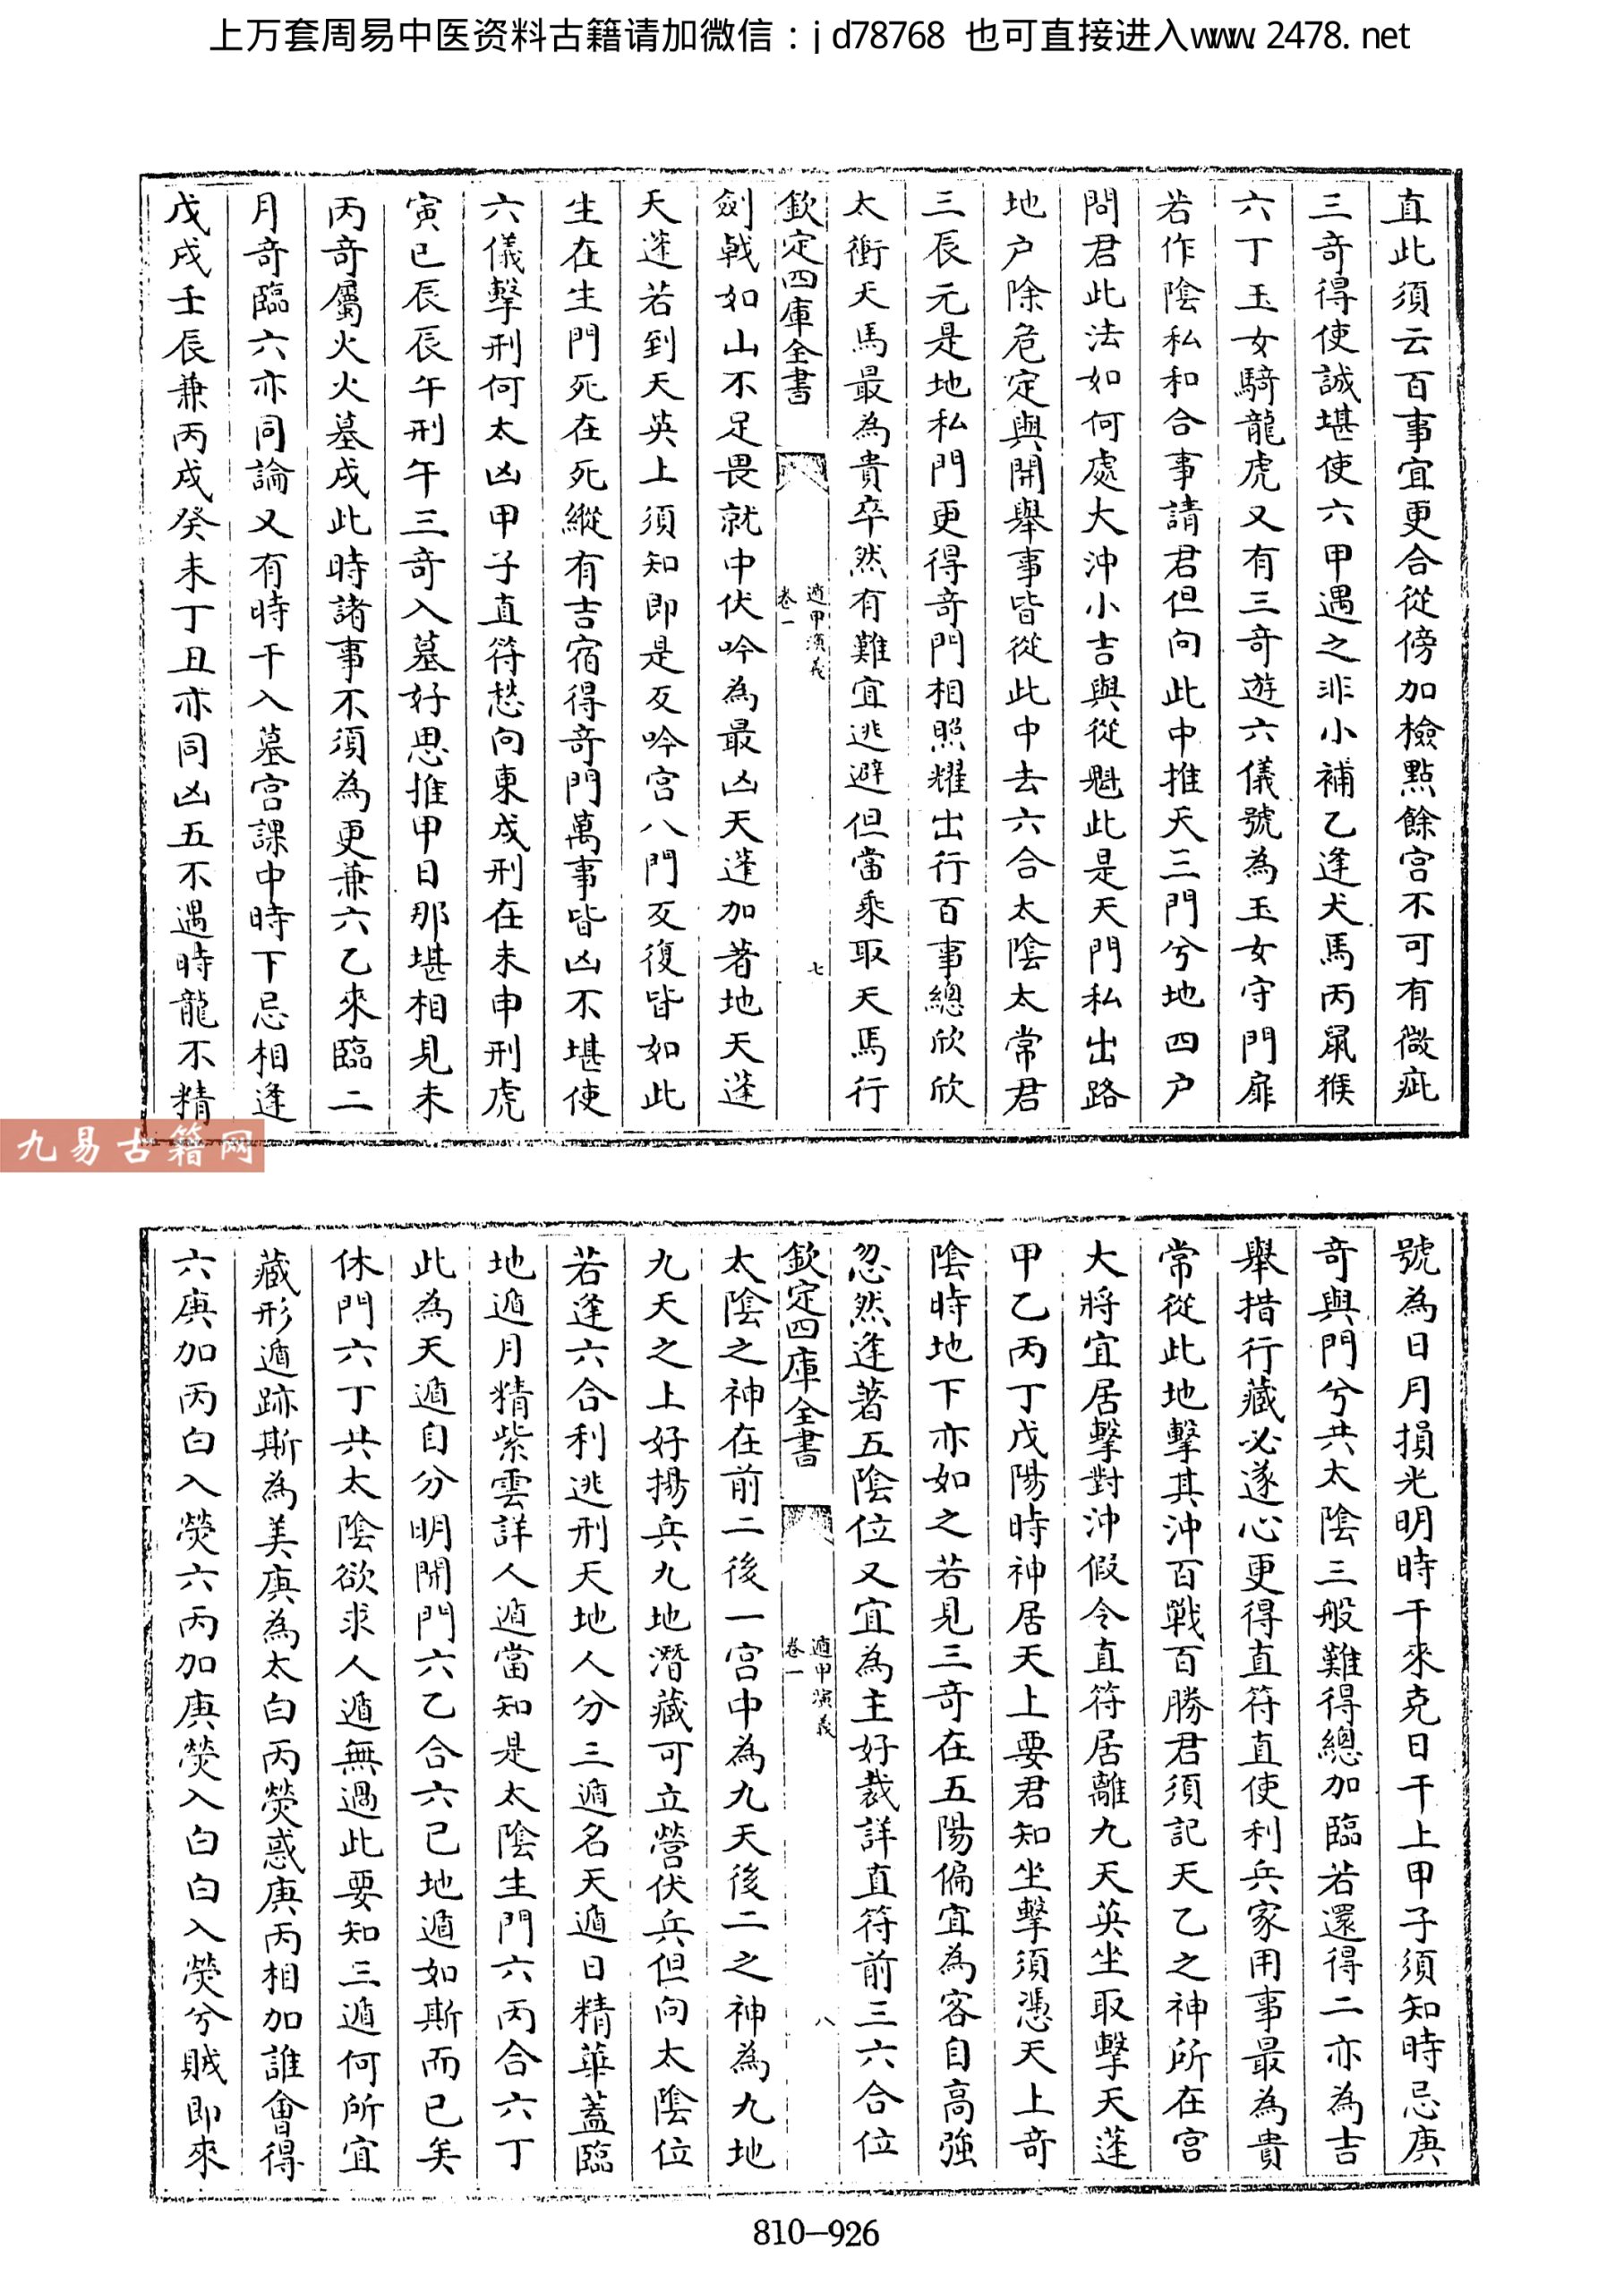 上万套周易中医资料古籍请加微信：jd78768 也可直接进入www.2478.net
直此須云百事宜更合從傍加檢點餘宮不可有微疵
三奇得使誠堪使六甲遇之非小補乙逢犬馬丙鼠猴
六丁玉女騎龍虎又有三奇遊六儀號為玉女守門扉
若作陰私和合事請君但向此中推天三門兮地四户
問君此法如何處大沖小吉與從魁此是天門私出路
地户除危定與開舉事皆從此中去六合太陰太常君
三辰元是地私門更得奇門相照耀出行百事總欣欣
太衝天馬最為貴卒然有難宜逃避但當乘取天馬行
欽定四庫全書
遁甲演義
卷一
七
劍戟如山不足畏就中伏吟為最凶天蓬加著地天蓬
天蓬若到天英上須知即是反吟宮八門反復皆如此
生在生門死在死縱有吉宿得奇門萬事皆凶不堪使
六儀擊刑何太凶甲子直符愁向東戌刑在未申刑虎
寅巳辰辰午刑午三奇入墓好思推甲日那堪相見未
丙奇屬火火墓戌此時諸事不須為更兼六乙來臨二
月奇臨六亦同論又有時干入墓宮課中時下忌相逢
戊戌壬辰兼丙戌癸未丁丑亦同凶五不遇時龍不精
九易古籍网
號為日月損光明時干來克日干上甲子須知時忌庚
奇與門兮共太陰三般難得總加臨若還得二亦為吉
舉措行藏必遂心更得直符直使利兵家用事最為貴
常從此地擊其沖百戰百勝君須記天乙之神所在宮
大將宜居擊對沖假令直符居離九天英坐取擊天蓬
甲乙丙丁戊陽時神居天上要君知坐擊須憑天上奇
陰時地下亦如之若見三奇在五陽偏宜為客自高強
忽然逢著五陰位又宜為主好裁詳直符前三六合位
欽定四庫全書
遁甲演義
卷一
八
太陰之神在前二後一宮中為九天後二之神為九地
九天之上好揚兵九地潛藏可立營伏兵但向太陰位
若逢六合利逃刑天地人分三遁名天遁日精華蓋臨
地遁月精紫雲詳人遁當知是太陰生門六丙合六丁
此為天遁自分明開門六乙合六己地遁如斯而已矣
休門六丁共太陰欲求人遁無過此要知三遁何所宜
藏形遁跡斯為美庚為太白丙熒惑庚丙相加誰會得
六庚加丙白入熒六丙加庚熒入白白入熒兮賊即來
810-926